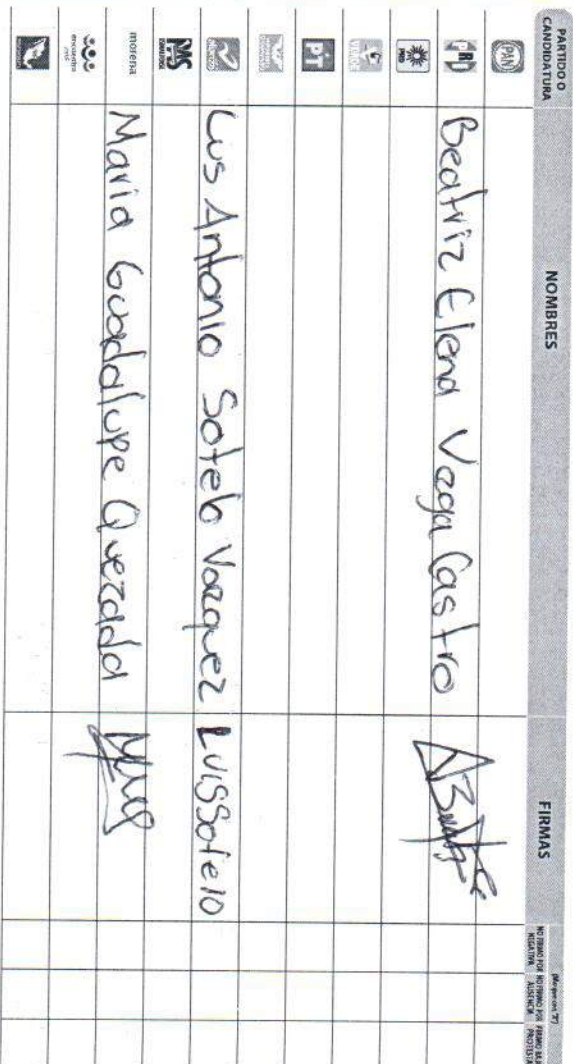 PARTIDO O CANDIDATURA NOMBRES FIRMAS (Marque con "X")
NO FIRMÓ POR NEGATIVA NO FIRMÓ POR AUSENCIA FIRMÓ BAJO PROTESTA
PAN
PRI Beatriz Elena Vega Castro
PRD
VERDE
PT
Lus Antonio Sotelo Vazquez LuisSotelo
morena Maria Guadalupe Quezada
encuentro